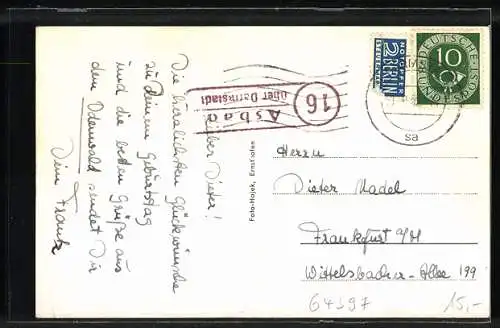 Lieber Dieter!
Die herzlichsten Glückwünsche
zu Deinem Geburtstag
und die besten Grüße aus
dem Odenwald sendet Dir
Dein Frank
16
Asbach
über Darmstadt
Foto-Hojek, Ernsthofen
NOTOPFER
2 BERLIN
STEUERMARKE
DEUTSCHE
BUNDESPOST
10
sa
Herrn
Dieter Madel
Frankfurt a/M
Wittelsbacher-Allee 199
64397
15,-